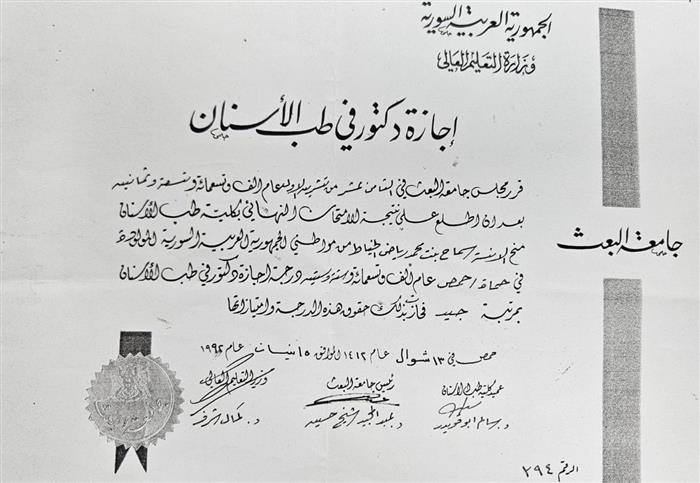 الجمهورية العربية السورية
وزارة التعليم العالي
إجازة دكتور في طب الأسنان
قرر مجلس جامعة البعث في الثامن عشر من تشرين الأول عام ألف وتسعمائة وتسعة وثمانين
بعد أن اطلع على نتيجة الامتحان النهائي بكلية طب الأسنان
منح الآنسة سماح بنت محمد رياض الخياط من مواطني الجمهورية العربية السورية المولودة
في حماة / حمص عام ألف وتسعمائة وستة وستين درجة إجازة دكتور في طب الأسنان
بمرتبة جيد فحازت بذلك حقوق هذه الدرجة وامتيازاتها
جامعة البعث
حمص في ١٣ شوال عام ١٤١٢ الموافق ١٥ نيسان عام ١٩٩٢
عميد كلية طب الأسنان
رئيس جامعة البعث
وزير التعليم العالي
د. سالم أبو قويدر
د. عبد المجيد شيخ حسين
د. كمال شرف
الرقم ٢٩٤